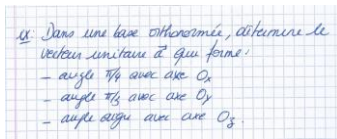 ex: Dans une base orthonormée, détermine le
vecteur unitaire a⃗ que forme:
- angle π/4 avec axe Ox
- angle π/3 avec axe Oy
- angle aigu avec axe Oz.